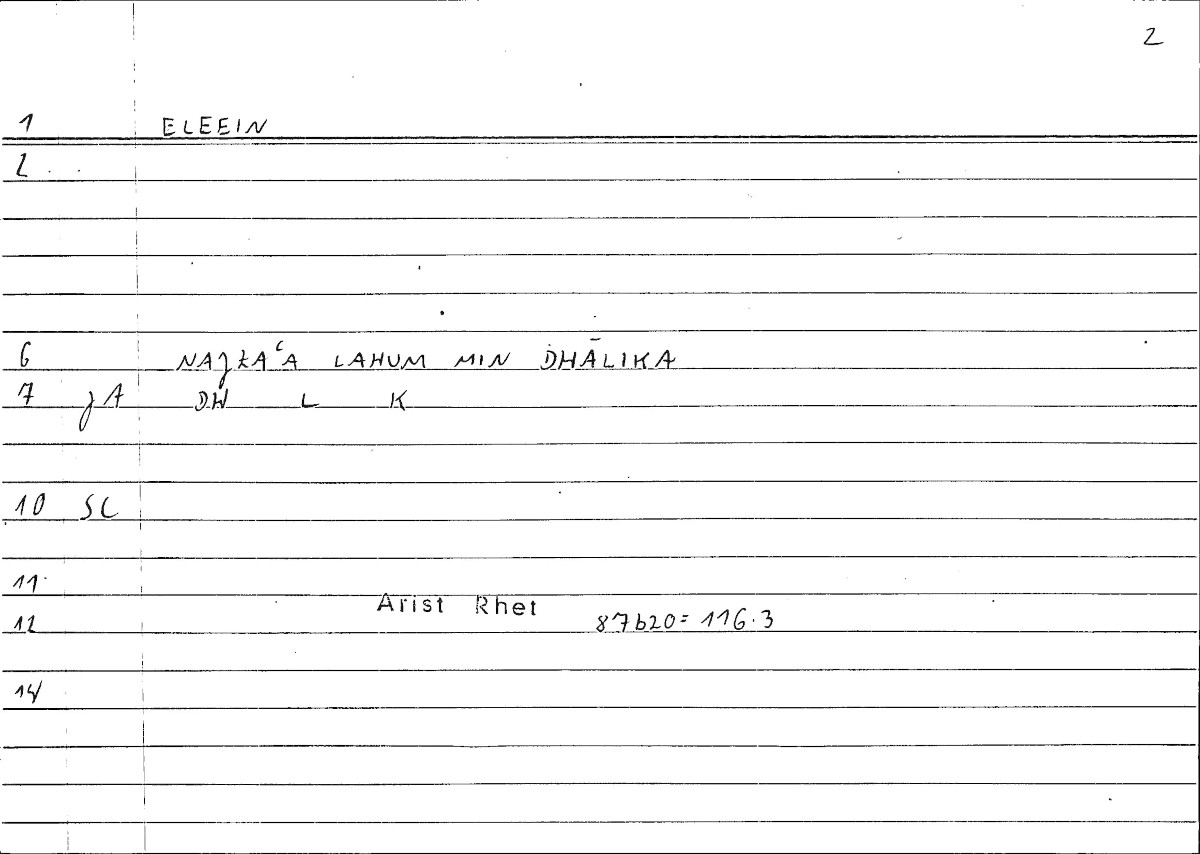 2
1 ELEEIN
2
6 LAHUM MIN DHĀLIKA
7 JA DH L K
10 SC
11
Arist Rhet
12 87b20=116.3
14